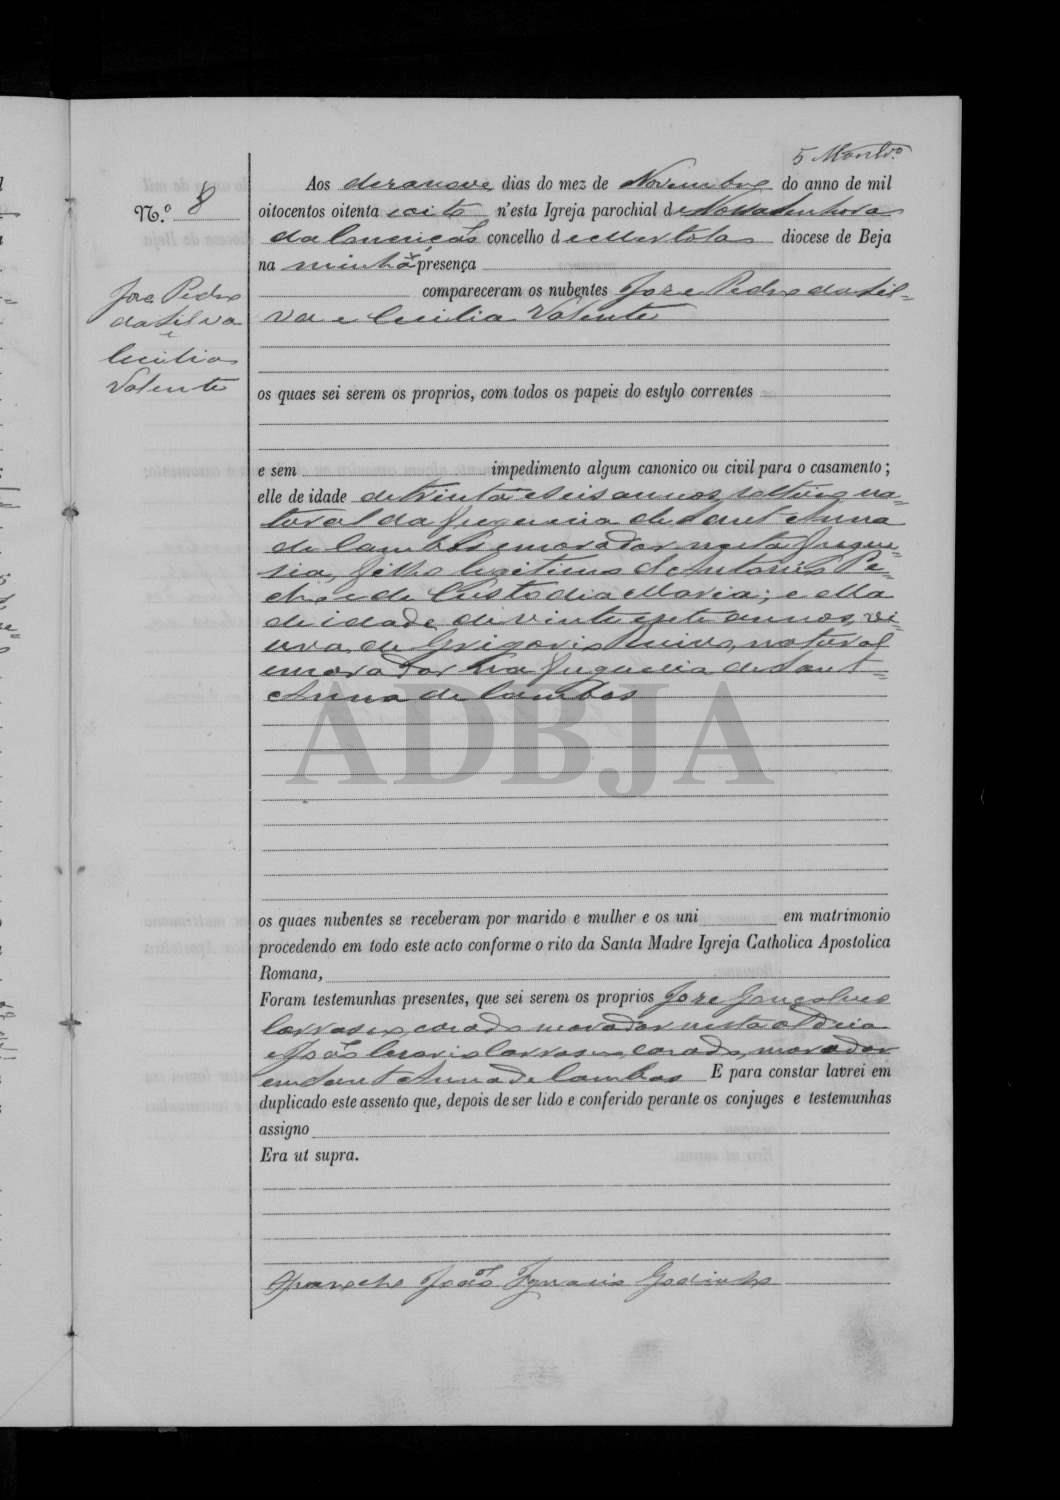 5 Montr.º
Aos deranove dias do mez de Novembro do anno de mil
N.º 8
oitocentos oitenta e oito n'esta Igreja parochial de Nossa Senhora
da Conceição concelho de Mertola diocese de Beja
na minha presença
compareceram os nubentes Jose Pedro da Sil=
va e Cecilia Valente
Jose Pedro
da Silva
e
Cecilia
Valente
os quaes sei serem os proprios, com todos os papeis do estylo correntes
e sem impedimento algum canonico ou civil para o casamento;
elle de idade de trinta e seis annos, solteiro na=
tural da freguezia de Sant'Anna
de Cambas e morador nesta fregue=
sia, filho legitimo de Antonio Pe=
dro e de Custodia Maria; e ella
de idade de vinte e sete annos, vi=
uva de Grigorio Ruivo, natural
e morador na freguezia de Sant=
Anna de Cambas
ADBJA
os quaes nubentes se receberam por marido e mulher e os uni em matrimonio
procedendo em todo este acto conforme o rito da Santa Madre Igreja Catholica Apostolica
Romana,
Foram testemunhas presentes, que sei serem os proprios Jose Gonçalves
casado morador nesta aldeia
e João casado, morador
em Sant Anna de Cambas E para constar lavrei em
duplicado este assento que, depois de ser lido e conferido perante os conjuges e testemunhas
assigno
Era ut supra.
O parocho João Ignacio Godinho